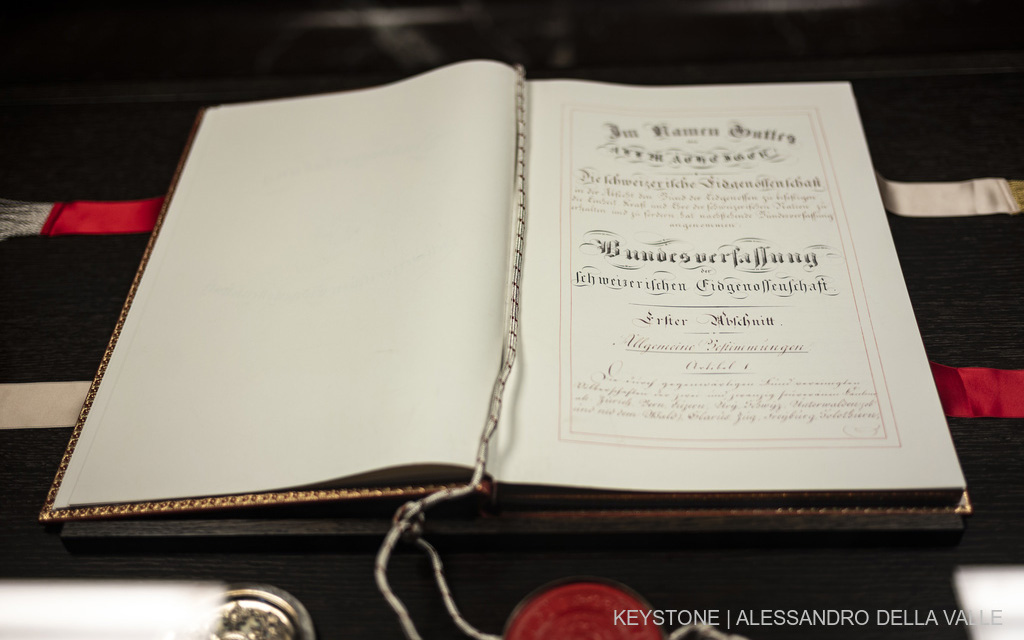 Im Namen Gottes
des
Allmächtigen
Die schweizerische Eidgenossenschaft
in der Absicht den Bund der Eidgenossen zu befestigen
die Einheit Kraft und Ehre der schweizerischen Nation zu
erhalten und zu fördern hat nachstehende Bundesverfassung
angenommen.
Bundesverfassung
der
schweizerischen Eidgenossenschaft.
Erster Abschnitt.
Allgemeine Bestimmungen.
Artikel 1
Die durch gegenwärtigen Bund vereinigten
Völkerschaften der zwei und zwanzig souveränen Kantone
als Zürich, Bern, Luzern, Ury, Schwyz, Unterwalden
Zug, Freyburg, Solothurn,
KEYSTONE | ALESSANDRO DELLA VALLE